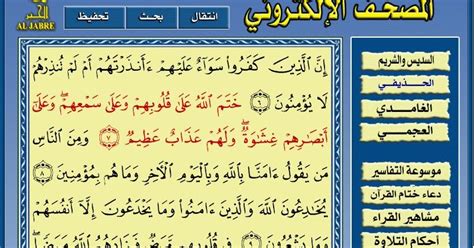 المصحف الإلكتروني
انتقال
بحث
تحفيظ
الجبر
ALJABRE
إِنَّ ٱلَّذِينَ كَفَرُوا۟ سَوَآءٌ عَلَيْهِمْ ءَأَنذَرْتَهُمْ أَمْ لَمْ تُنذِرْهُمْ
لَا يُؤْمِنُونَ ٦ خَتَمَ ٱللَّهُ عَلَىٰ قُلُوبِهِمْ وَعَلَىٰ سَمْعِهِمْ ۖ وَعَلَىٰٓ
أَبْصَٰرِهِمْ غِشَٰوَةٌ ۖ وَلَهُمْ عَذَابٌ عَظِيمٌ ٧ وَمِنَ ٱلنَّاسِ
مَن يَقُولُ ءَامَنَّا بِٱللَّهِ وَبِٱلْيَوْمِ ٱلْءَاخِرِ وَمَا هُم بِمُؤْمِنِينَ ٨
يُخَٰدِعُونَ ٱللَّهَ وَٱلَّذِينَ ءَامَنُوا۟ وَمَا يَخْدَعُونَ إِلَّآ أَنفُسَهُمْ
وَمَا يَشْعُرُونَ ٩ فِى قُلُوبِهِم مَّرَضٌ فَزَادَهُمُ ٱللَّهُ مَرَضًا ۖ
السديس والشريم
الحذيفي
الغامدي
العجمي
موسوعة التفاسير
دعاء ختام القرآن
مشاهير القراء
أحكام التلاوة